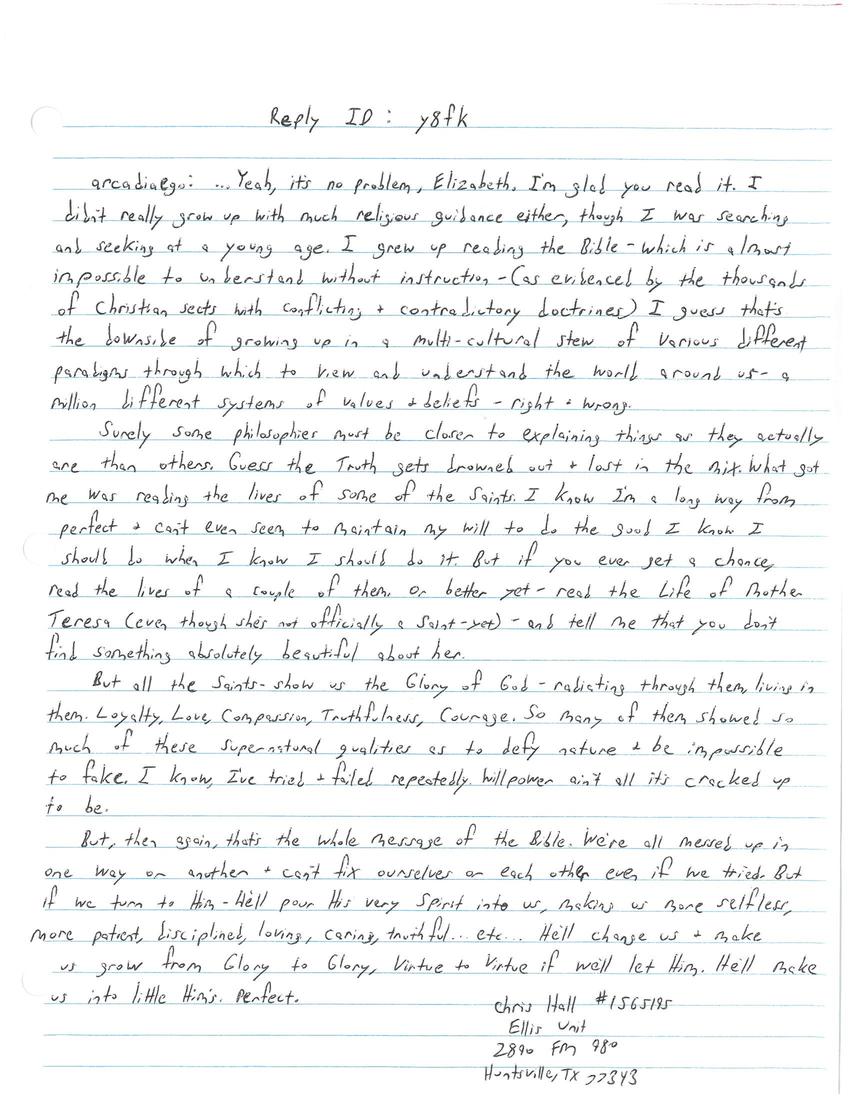 Reply ID: y8fk
arcadiaego: ...Yeah, it's no problem, Elizabeth. I'm glad you read it. I
didn't really grow up with much religious guidance either, though I was searching
and seeking at a young age. I grew up reading the Bible - which is almost
impossible to understand without instruction - (as evidenced by the thousands
of Christian sects with conflicting + contradictory doctrines) I guess that's
the downside of growing up in a multi-cultural stew of various different
paradigms through which to view and understand the world around us - a
million different systems of values + beliefs - right + wrong.
Surely some philosophies must be closer to explaining things as they actually
are than others. Guess the Truth gets drowned out + lost in the mix. What got
me was reading the lives of some of the Saints. I know I'm a long way from
perfect + can't even seem to maintain my will to do the good I know I
should do when I know I should do it. But if you ever get a chance,
read the lives of a couple of them. Or better yet - read the Life of Mother
Teresa (even though she's not officially a Saint-yet) - and tell me that you don't
find something absolutely beautiful about her.
But all the Saints - show us the Glory of God - radiating through them, living in
them. Loyalty, Love, Compassion, Truthfulness, Courage. So many of them showed so
much of these supernatural qualities as to defy nature + be impossible
to fake. I know, I've tried + failed repeatedly. Willpower ain't all it's cracked up
to be.
But, then again, that's the whole message of the Bible. We're all messed up in
one way or another + can't fix ourselves or each other even if we tried. But
if we turn to Him - He'll pour His very Spirit into us, making us more selfless,
more patient, disciplined, loving, caring, truthful... etc... He'll change us + make
us grow from Glory to Glory, Virtue to Virtue if we'll let Him. He'll make
us into little Him's. Perfect.
Chris Hall #1565195
Ellis Unit
2890 FM 980
Huntsville, TX 77343